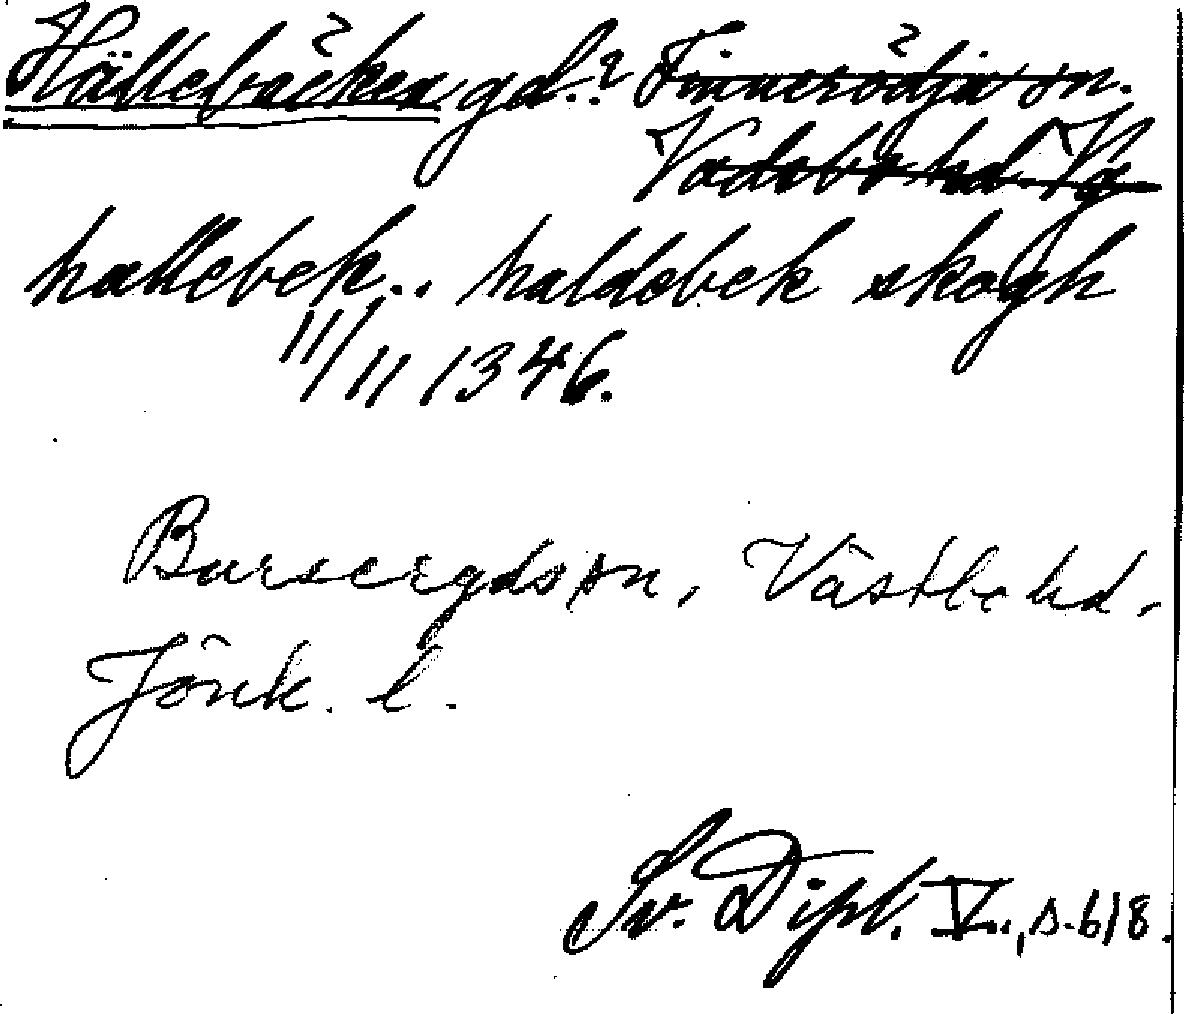 Hällebäcken gd.? Finnerödja sn.
Vadsbo hd. Vg
hallebek.. haldebek skogh
11/11 1346.
Burserydssn, Västbo hd,
Jönk. l.
Sv. Dipl. V., s. 618.